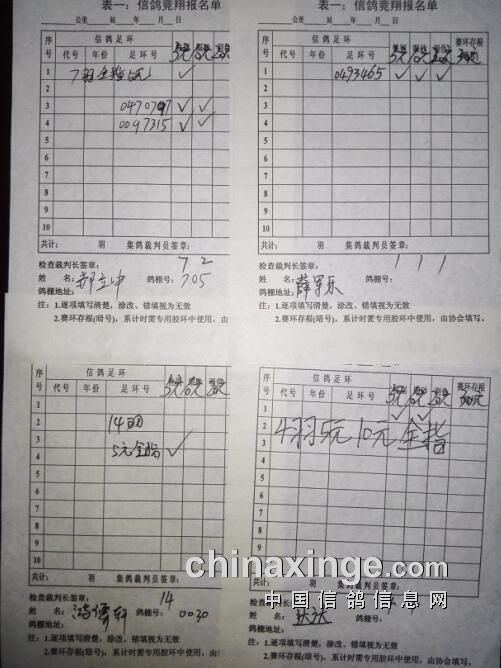 表一：信鸽竞翔报名单
公里 站 年 月 日
序号 信鸽足环
代号 年份 足环号 5元 10元 20元
1 7羽全指5元 ✓
2
3 0470797 ✓ ✓
4 0097315 ✓ ✓
5
6
7
8
9
10
共计： 羽 集鸽裁判员签章： 7 2
检查裁判长签章：
姓 名： 鸽棚号： 705
鸽棚地址：
注：1.逐项填写清楚，涂改、错填视为无效
2.赛环存根(暗号)，累计时需专用胶环中使用，由
表一：信鸽竞翔报名单
公里 站 年 月 日
序号 信鸽足环 赛环存根
代号 年份 足环号 5元 10元
1 0493465 ✓ ✓ ✓
2
3
4
5
6
7
8
9
10
共计： 羽 集鸽裁判员签章： 1 1 1
检查裁判长签章：
姓 名： 薛军乐 鸽棚号：
鸽棚地址：
注：1.逐项填写清楚，涂改、错填视为无效
2.赛环存根(暗号)，累计时需专用胶环中使用，由协会填写。
序号 信鸽足环
代号 年份 足环号 5元 10元
1
2 14羽
3
4 5元全指 ✓
5
6
7
8
9
10
共计： 羽 集鸽裁判员签章：
检查裁判长签章： 14
姓 名： 鸽棚号： 0030
鸽棚地址：
注：1.逐项填写清楚，涂改、错填视为无效
2.赛环存根(暗号)，累计时需专用胶环中使用，由
序号 信鸽足环 赛环存根
代号 年份 足环号 5元 10元
1 ✓ ✓
2 4羽5元10元全指
3
4
5
6
7
8
9
10
共计： 羽 集鸽裁判员签章：
检查裁判长签章：
姓 名： 鸽棚号：
鸽棚地址：
注：1.逐项填写清楚，涂改、错填视为无效
2.赛环存根(暗号)，累计时需专用胶环中使用，由协会填写。
chinaxinge.com
中国信鸽信息网